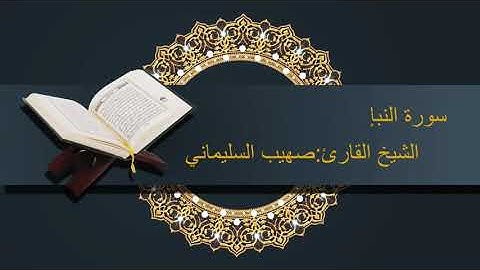 سورة النبإ
الشيخ القارئ:صهيب السليماني